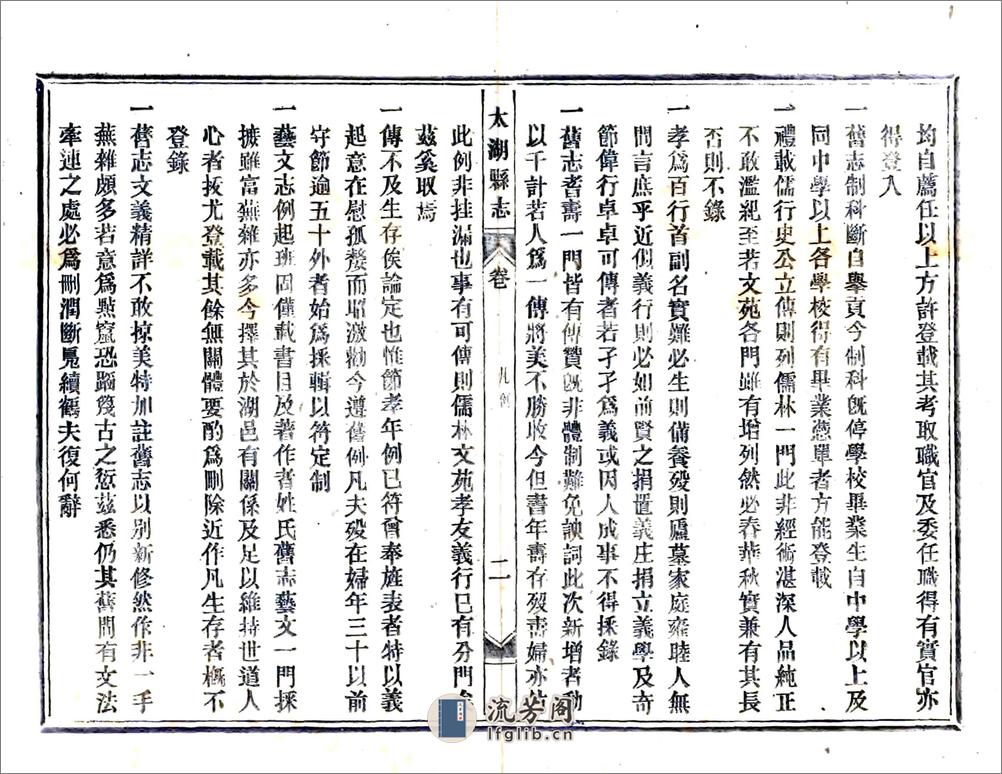 均自薦任以上方許登載其考取職官及委任職得有實官亦
得登入
一舊志制科斷自舉貢今制科旣停學校畢業生自中學以上及
同中學以上各學校得有畢業憑單者方能登載
一禮載儒行史公立傳則列儒林一門此非經術湛深人品純正
不敢濫紀至若文苑各門雖有增列然必春華秋實兼有其長
否則不錄
一孝爲百行首副名實難必生則備養歿則廬墓家庭雍睦人無
間言庶乎近似義行則必如前賢之捐置義庄捐立義學及奇
節偉行卓卓可傳者若孑孑爲義或因人成事不得採錄
一舊志耆壽一門皆有傳贊旣非體制難免諛詞此次新增者動
以千計若人爲一傳將美不勝收今但書年壽存歿壽婦亦
太湖縣志
卷
凡例
二
此例非挂漏也事有可傳則儒林文苑孝友義行已有分門
茲奚取焉
一傳不及生存俟論定也惟節孝年例已符曾奉旌表者特以義
起意在慰孤嫠而昭激勸今遵舊例凡夫歿在婦年三十以前
守節逾五十外者始爲採輯以符定制
一藝文志例起班固僅載書目及著作者姓氏舊志藝文一門採
摭雖富蕪雜亦多今擇其於湖邑有關係及足以維持世道人
心者援尤登載其餘無關體要酌爲刪除近作凡生存者槪不
登錄
一舊志文義精詳不敢掠美特加註舊志以別新修然作非一手
蕪雜頗多若意爲點竄恐蹈蔑古之愆茲悉仍其舊間有文法
牽連之處必爲刪潤斷鳧續鶴夫復何辭
流芳阁
lfglib.cn